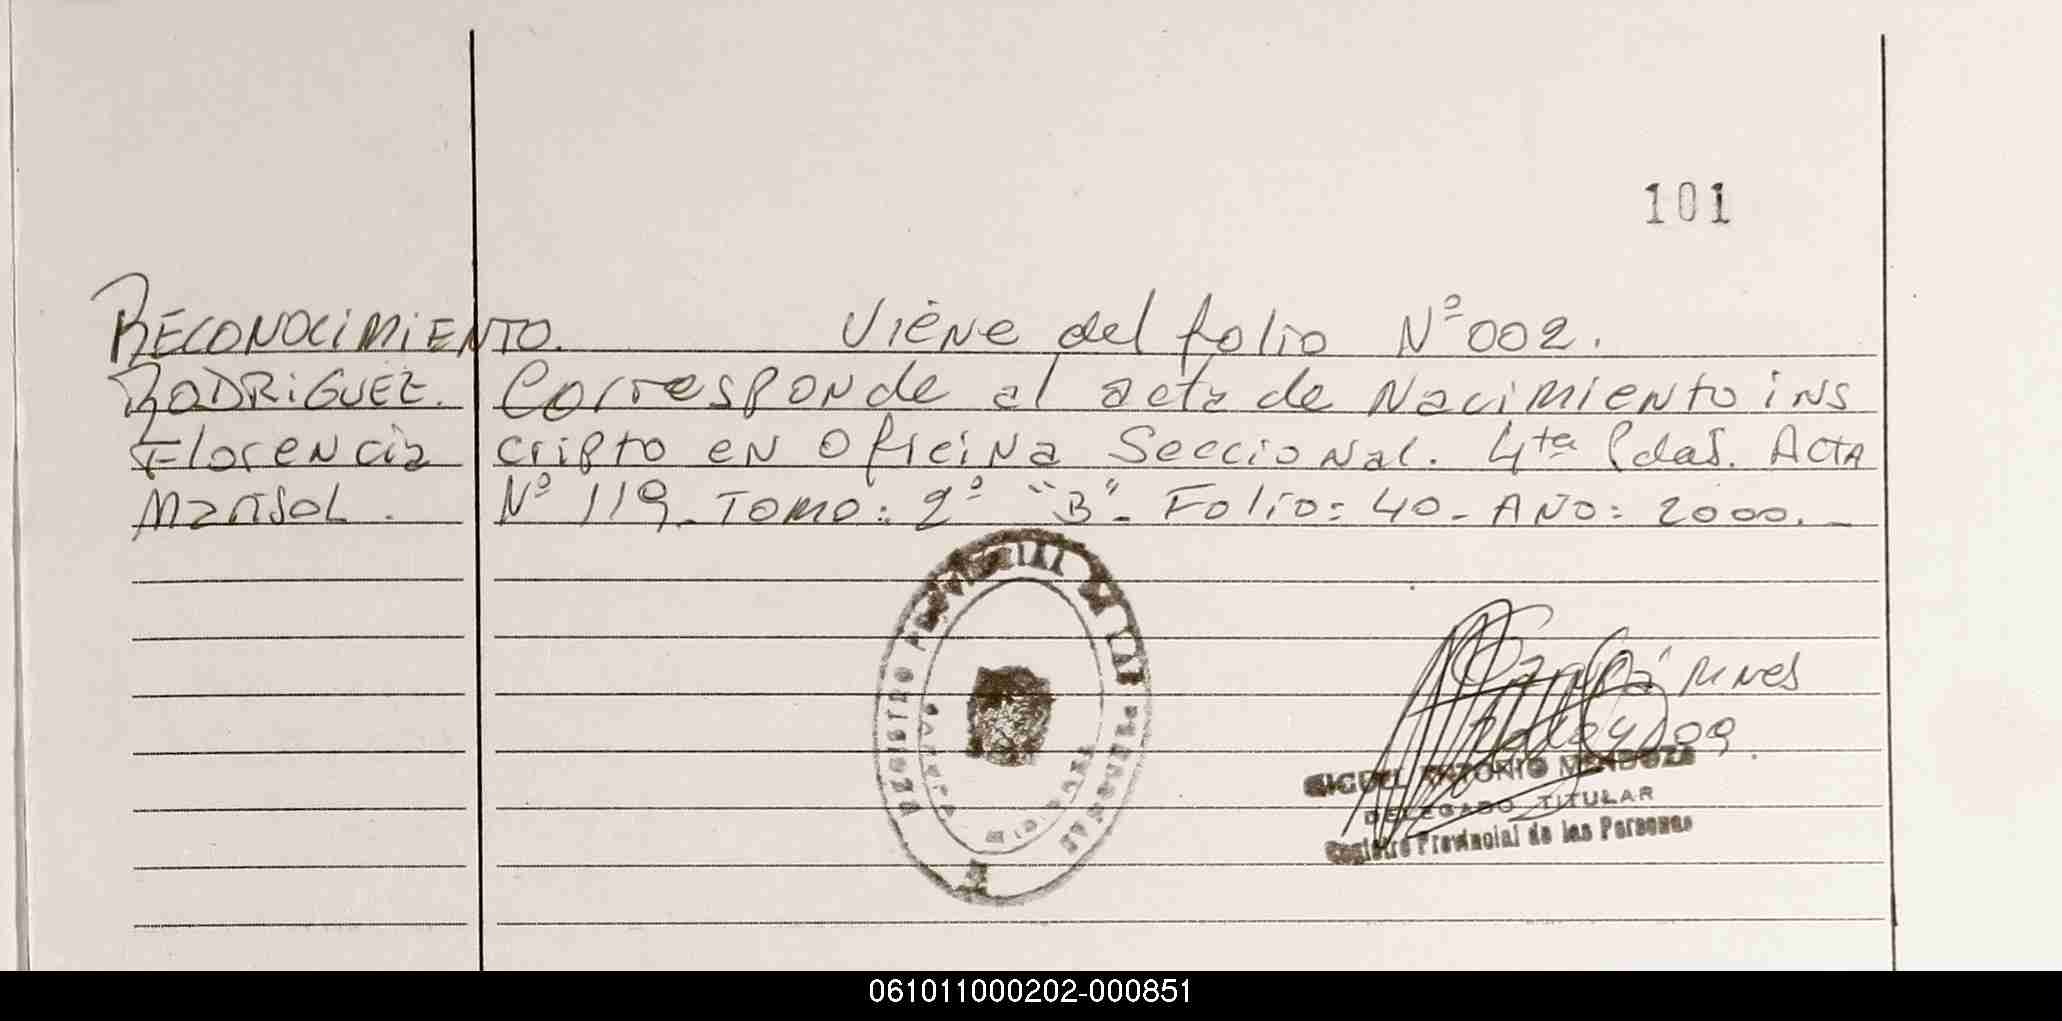 101
RECONOCIMIENTO. Viene del folio Nº 002.
RODRIGUEZ. Corresponde al acta de Nacimiento ins
Florencia cripto en Oficina Seccional. 4ta Pdas. ACTA
Marisol. Nº 119_ TOMO: 2º "B"_ Folio: 40_ AÑO: 2000._
REGISTRO PROVINCIAL DE LAS PERSONAS
MIGUEL ANTONIO MENDOZA
DELEGADO TITULAR
Registro Provincial de las Personas
061011000202-000851